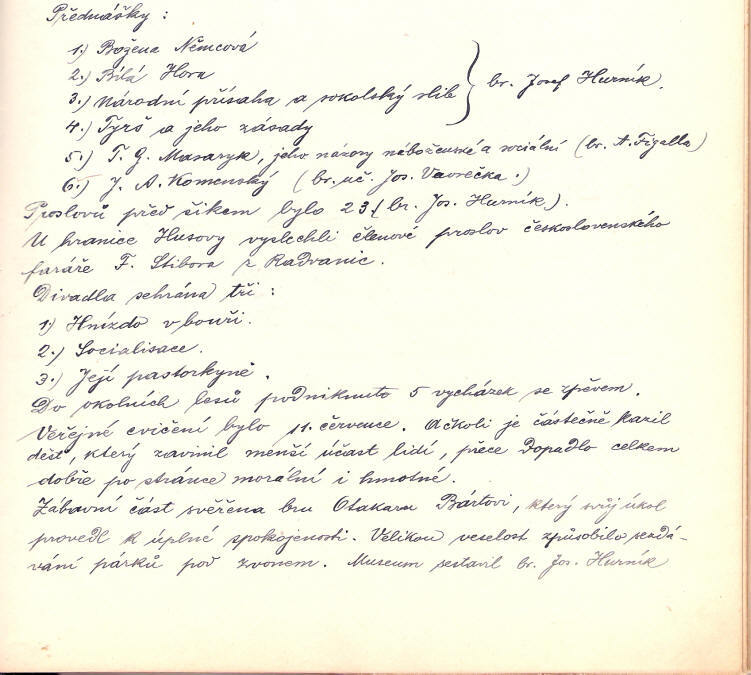 Přednášky :
1.) Božena Němcová
2.) Bílá Hora
3.) Národní přísaha a sokolský slib } br. Josef Hurník.
4.) Tyrš a jeho zásady
5.) T. G. Masaryk, jeho názory náboženské a sociální (br. A. Figalla)
6.) J. A. Komenský (br. uč. Jos. Vavrečka.)
Proslovů před šikem bylo 23 (br. Jos. Hurník).
U hranice Husovy vyslechli členové proslov československého
faráře F. Stibora z Radvanic.
Divadla sehrána tři :
1.) Hnízdo v bouři.
2.) Socialisace.
3.) Její pastorkyně.
Do okolních lesů podniknuto 5 vycházek se zpěvem.
Veřejné cvičení bylo 11. července. Ačkoli je částečně kazil
déšť, který zavinil menší účast lidí, přece dopadlo celkem
dobře po stránce morální i hmotné.
Zábavní část svěřena bru Otakaru Bártovi, který svůj úkol
provedl k úplné spokojenosti. Velikou veselost způsobilo sezdá-
vání párků pod zvonem. Museum sestavil br. Jos. Hurník